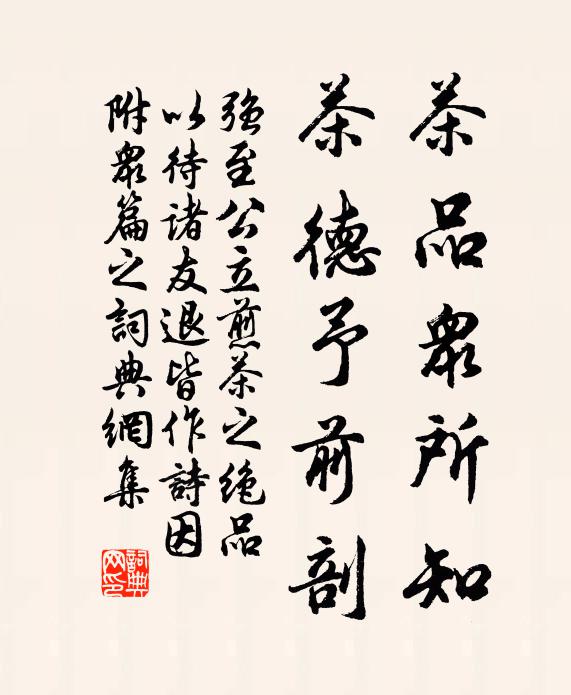 茶品眾所知
茶德予前剖
強至公立煎茶之絕品
以待諸友退皆作詩因
附眾篇之詞典網集
詞典網印